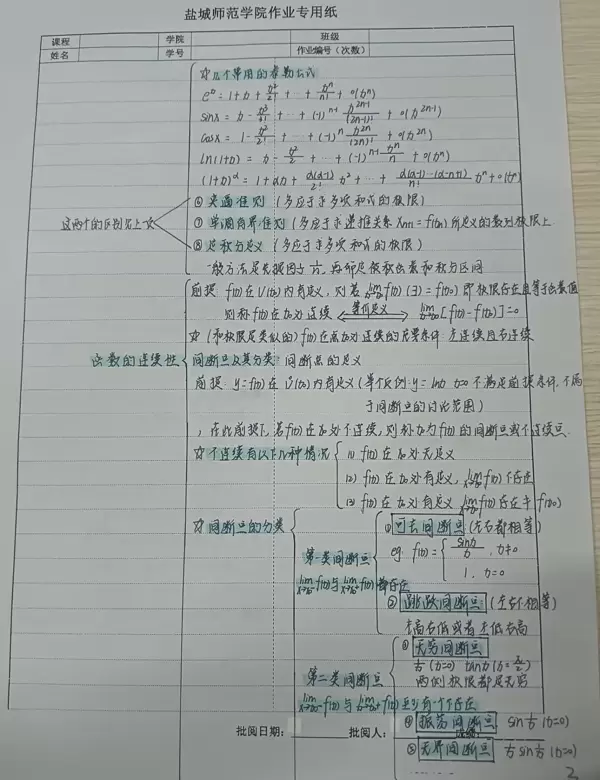 盐城师范学院作业专用纸
课程 学院 班级
姓名 学号 作业编号(次数)
☆几个常用的泰勒公式
eˣ = 1+x+x²/2!+…+xⁿ/n!+o(xⁿ)
sinx = x-x³/3!+…+(-1)ⁿ⁻¹ x²ⁿ⁻¹/(2n-1)!+o(x²ⁿ⁻¹)
cosx = 1-x²/2!+…+(-1)ⁿ x²ⁿ/(2n)!+o(x²ⁿ)
ln(1+x) = x-x²/2+…+(-1)ⁿ⁻¹ xⁿ/n+o(xⁿ)
(1+x)^α = 1+αx+α(α-1)/2! x²+…+α(α-1)…(α-n+1)/n! xⁿ+o(xⁿ)
⑥ 夹逼准则(多应于求多项和式的极限)
这两个的区别见上文
⑦ 单调有界准则(多应于求递推关系 Xn+1=f(xn)所定义的数列极限上
⑧ 定积分定义(多应于求多项和式的极限)
一般方法是先提因子1/n,再确定被积函数和积分区间
前提:f(x)在U(x₀)内有定义,则若 lim x→x₀ f(x)(∃)=f(x₀) 即极限存在且等于函数值
则称f(x)在x₀处连续 等价定义 lim x→x₀ [f(x)-f(x₀)]=0
☆(和极限是类似的)f(x)在点x₀处连续的充要条件:左连续且右连续
函数的连续性
间断点及其分类:间断点的定义
前提:y=f(x)在Ů(x₀)内有定义(举个反例:y=lnx x=0不满足前提条件,不属
于间断点的讨论范围)
,在此前提下,若f(x)在x₀处不连续,则称x₀为f(x)的间断点或不连续点.
☆不连续有以下几种情况
(1) f(x)在x₀处无定义
(2) f(x)在x₀处有定义,lim x→x₀ f(x)不存在
(3) f(x)在x₀处有定义 lim x→x₀ f(x)存在≠f(x₀)
☆间断点的分类
第一类间断点
lim x→x₀⁻ f(x)与lim x→x₀⁺ f(x)都存在
① 可去间断点(左右都相等)
eg. f(x)= { sinx/x , x≠0
1, x=0
② 跳跃间断点(左右不相等)
左高右低或者左低右高
第二类间断点
lim x→x₀⁻ f(x)与lim x→x₀⁺ f(x)至少有一个不存在
① 无穷间断点
1/x (x=0) tanx(x=π/2)
两侧极限都是无穷
② 振荡间断点 sin1/x (x=0)
③ 无界间断点 1/x sin1/x (x=0)
批阅日期: 批阅人:
2